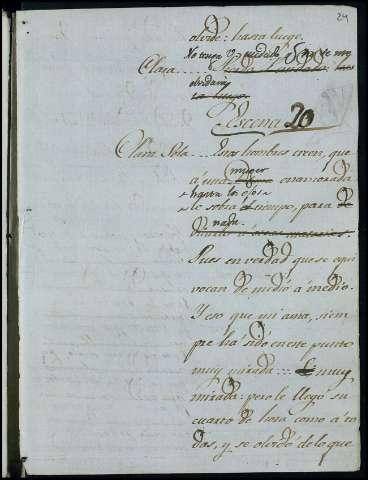 24
olvide: hasta luego.
No tenga V. cuidado
Clara
olvidará
Escena 20
Clara Sola... Estos hombres creen, que
muger
á una enamorada
hasta los ojos
le sobra el tiempo, para
nada.
Pues en verdad que se equi
vocan de medio á medio.
Y eso que mi ama, siem
pre há sido en este punto
muy mirada... muy
mirada: pero le llegó su
cuarto de hora como á to
das, y se olvidó de lo que